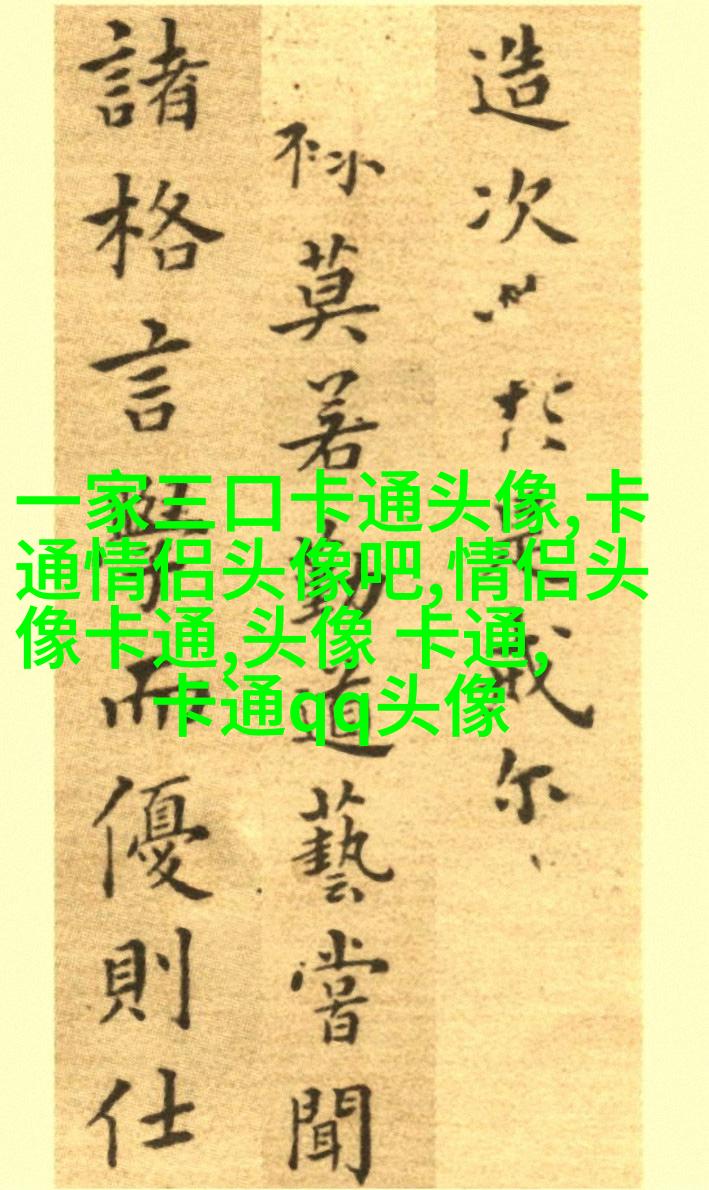 造次於是戒尔
莫若勤道藝嘗聞
諸格言學而優則仕
一家三口卡通头像,卡
通情侣头像吧,情侣头
像卡通,头像 卡通,
卡通qq头像